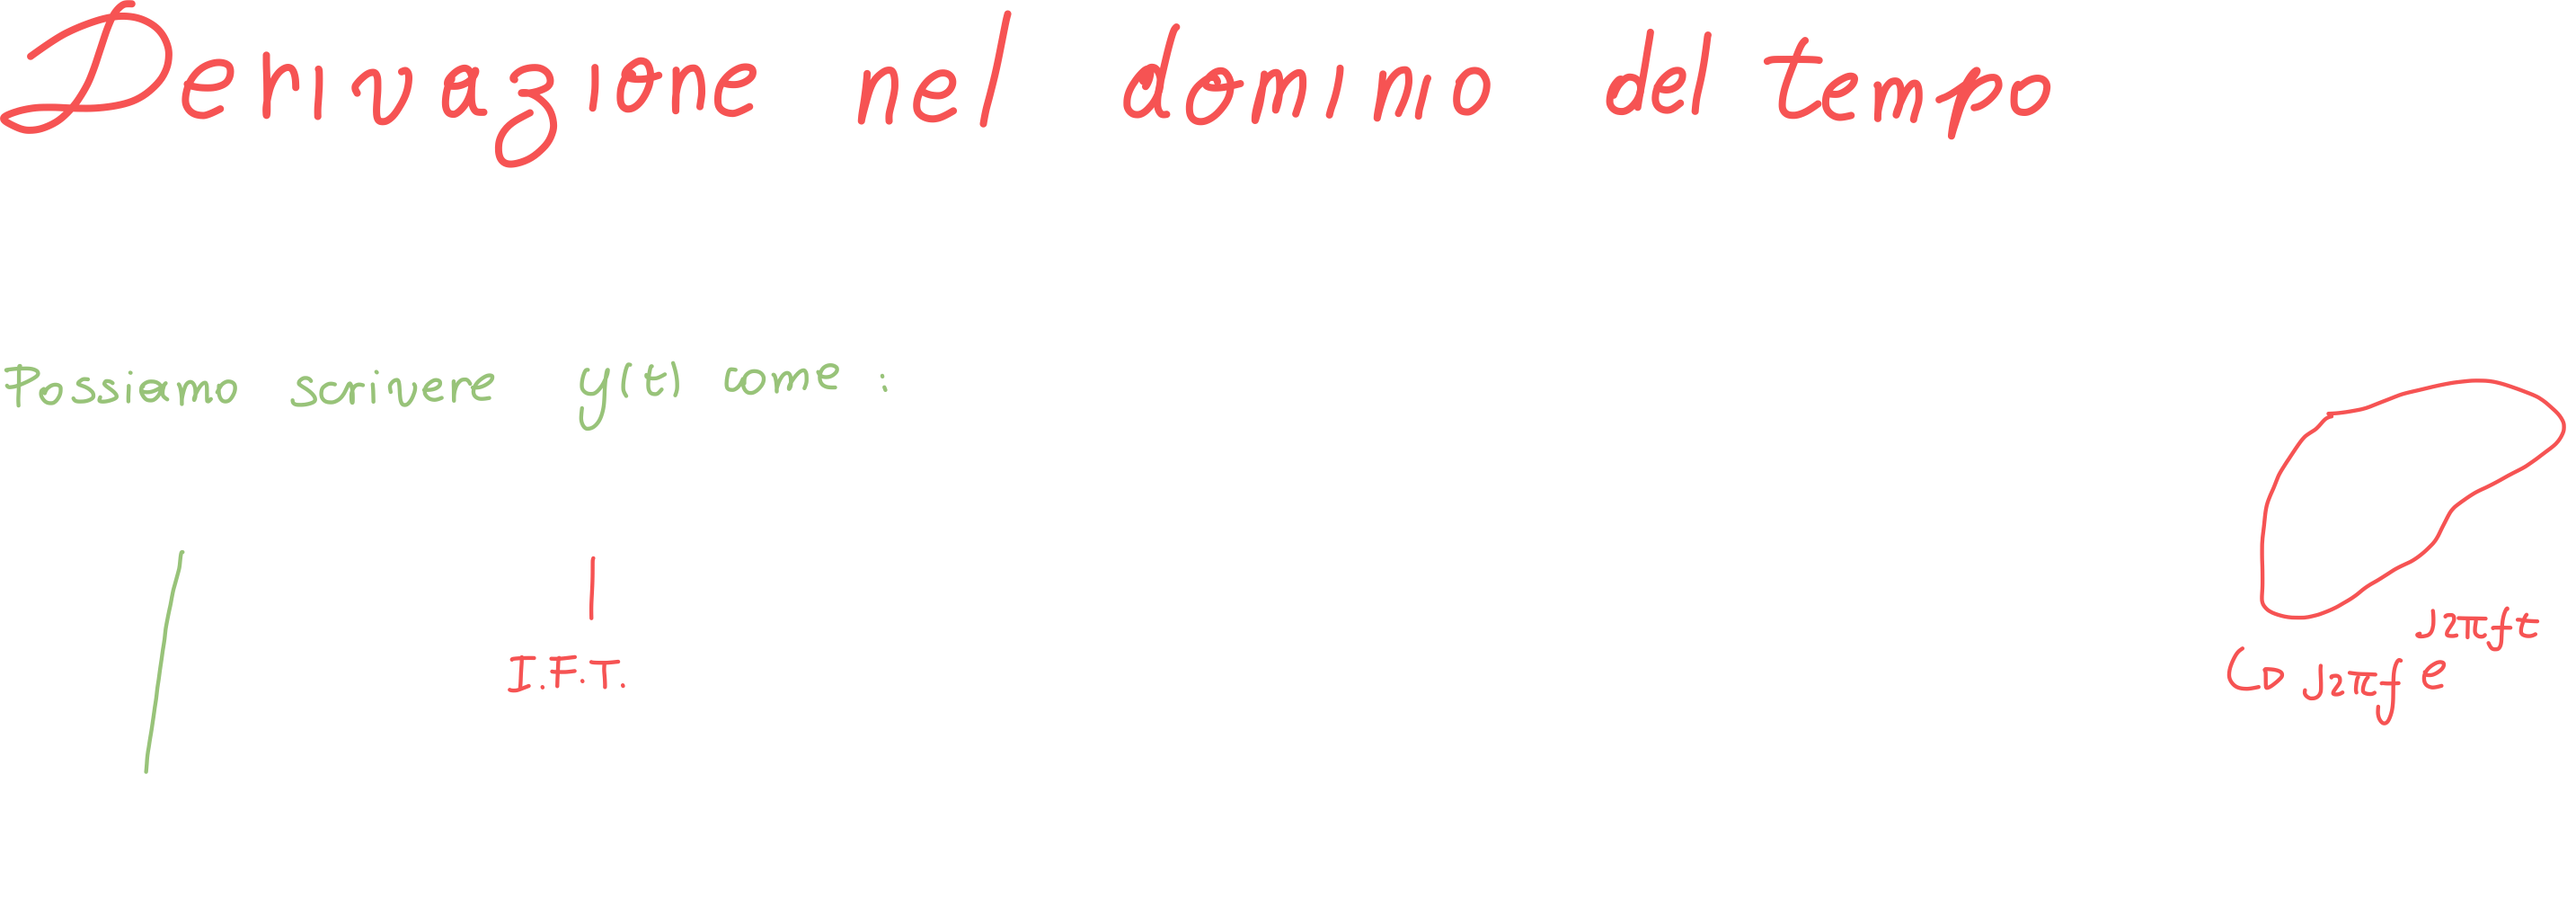 Derivazione nel dominio del tempo
Possiamo scrivere y(t) come :
I.F.T.
J2πf e^J2πft